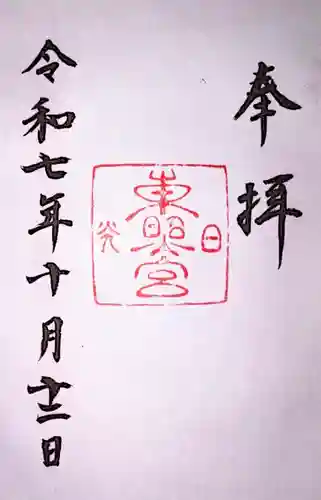 奉拝
日光
東照宮
令和七年十月十二日